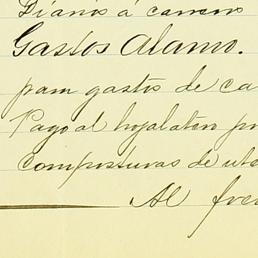 Diarios á carrero
Gastos Alamo.
pam gastos de ca
Pago al hojalatero po
composturas de ute
Al fre